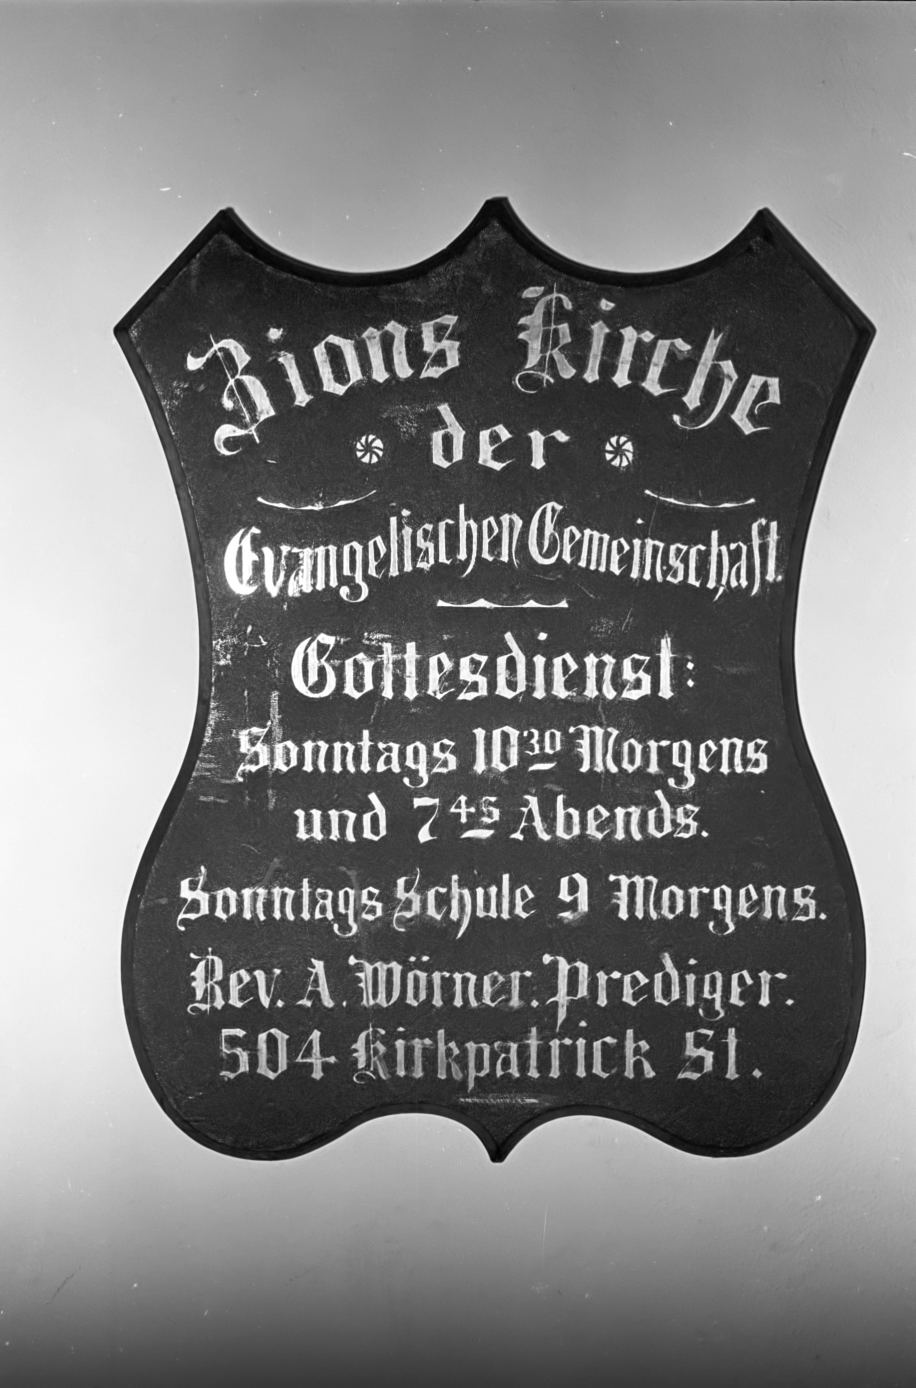 Zions Kirche
der
Evangelischen Gemeinschaft.
Gottesdienst:
Sonntags 10 30 Morgens
und 7 45 Abends.
Sonntags Schule 9 Morgens.
Rev. A. Wörner. Prediger.
504 Kirkpatrick St.